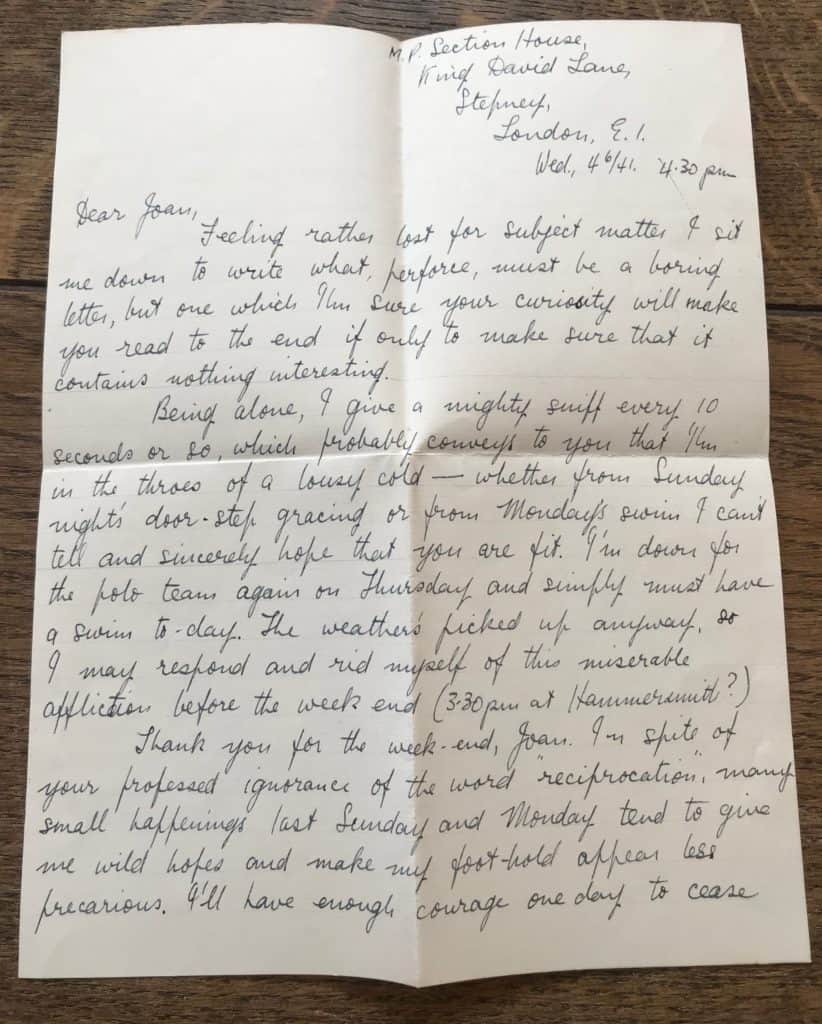 M.P. Section House,
King David Lane,
Stepney,
London, E.1.
Wed., 4 6/41. 4.30 pm
Dear Joan,
Feeling rather lost for subject matter I sit
me down to write what, perforce, must be a boring
letter, but one which I'm sure your curiosity will make
you read to the end if only to make sure that it
contains nothing interesting.
Being alone, I give a mighty sniff every 10
seconds or so, which probably conveys to you that I'm
in the throes of a lousy cold — whether from Sunday
night's door-step gracing or from Monday's swim I can't
tell and sincerely hope that you are fit. I'm down for
the polo team again on Thursday and simply must have
a swim to-day. The weather's picked up anyway, so
I may respond and rid myself of this miserable
affliction before the week end (3.30pm at Hammersmith?)
Thank you for the week-end, Joan. In spite of
your professed ignorance of the word "reciprocation", many
small happenings last Sunday and Monday tend to give
me wild hopes and make my foot-hold appear less
precarious. I'll have enough courage one day to cease